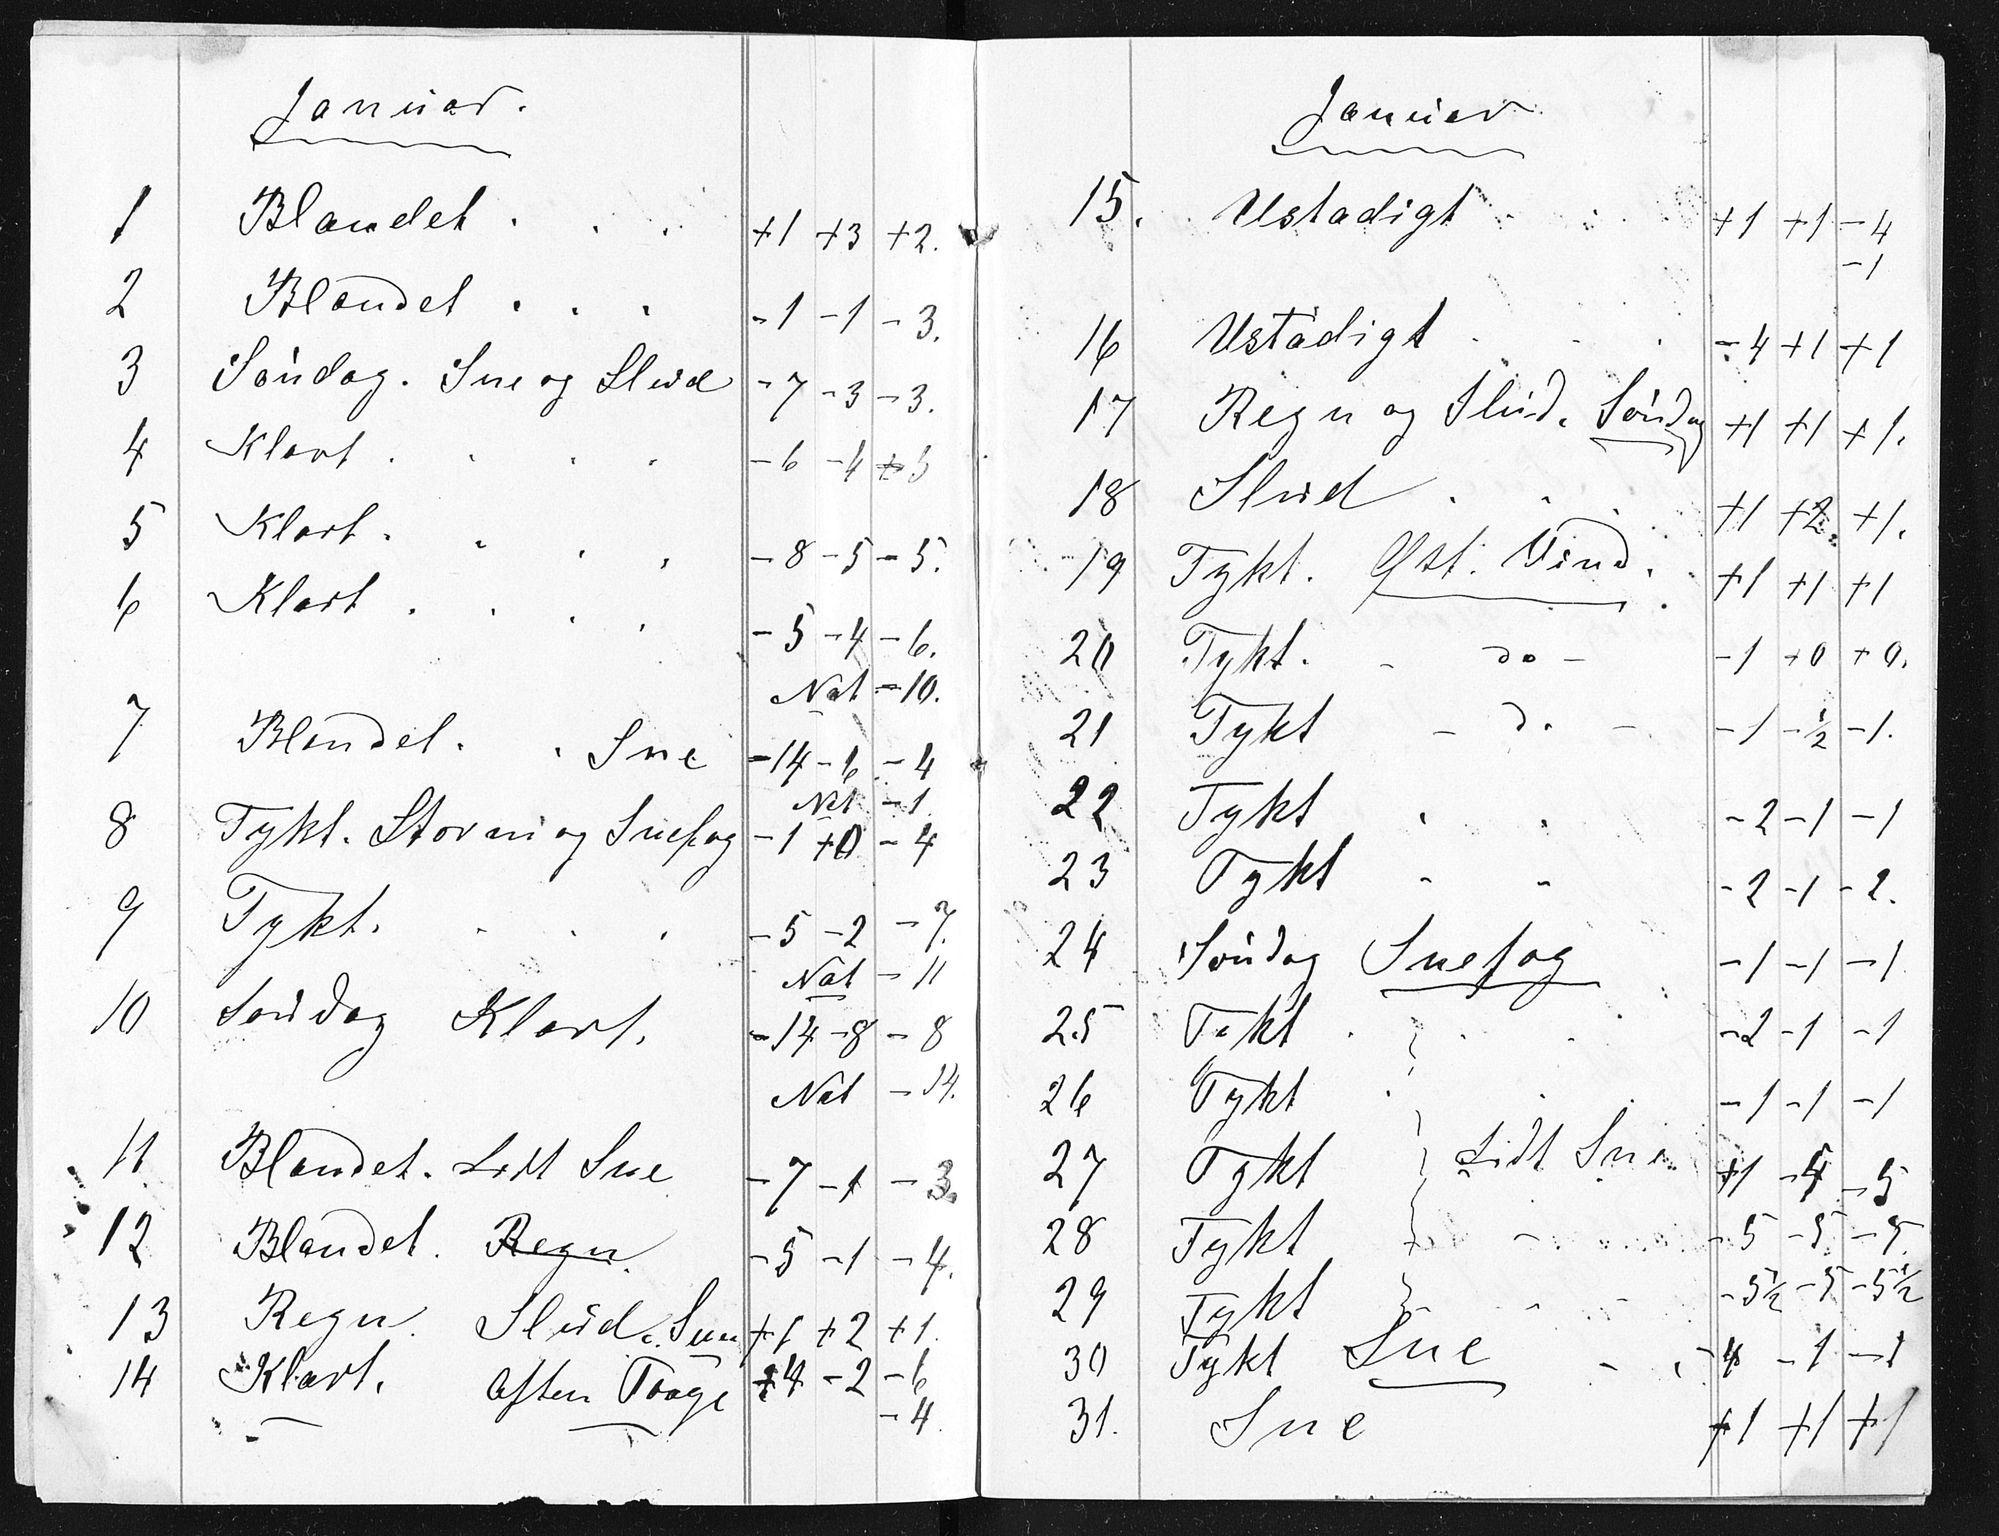 Januar.
1 Blandet . . . +1 +3 +2.
2 Blandet . . . -1 -1 -3.
3 Søndag. Sne og Slud -7 -3 -3.
4 Klart . . . . -6 -4
5 Klart . . . . -8 -5 -5.
6 Klart . . . . -5 -4 -6.
Nat -10.
7 Blandet. . Sne -14 -6 -4
Nat -1
8 Tykt. Storm og Snefog -1 +0 -4
9 Tykt. . . . -5 -2 -7.
Nat -11
10 Søndag Klart. -14 -8 -8
Nat -14.
11 Blandet. Lidt Sne -7 -1 -3.
12 Blandet. Regn. -5 -1 -4.
13 Regn. Slud. +1 +2 +1.
14 Klart. Aften Taage -2 -6
-4.
Januar
15. Ustadigt . . +1 +1 -4
-1
16 Ustadigt . . . -4 +1 +1
17 Regn og Slud. Søndag +1 +1 +1.
18 Slud . . . +1 +2. +1.
19 Tykt. Øst. Vind. +1 +1 +1
20 Tykt. - do - -1 +0 +0.
21 Tykt - do - -1 -½ -1.
22 Tykt . . -2 -1 -1
23 Tykt - - -2 -1 -2.
24 Søndag Snefog -1 -1 -1
25 Tykt . . . -2 -1 -1
26 Tykt . . -1 -1 -1
27 Tykt Lidt Sne. +1 -5
28 Tykt - -5 -5 -5
29 Tykt - - -5½ -5 -5½
30 Tykt Sne - . 4 -1 -1
31. Sne +1 +1 +1